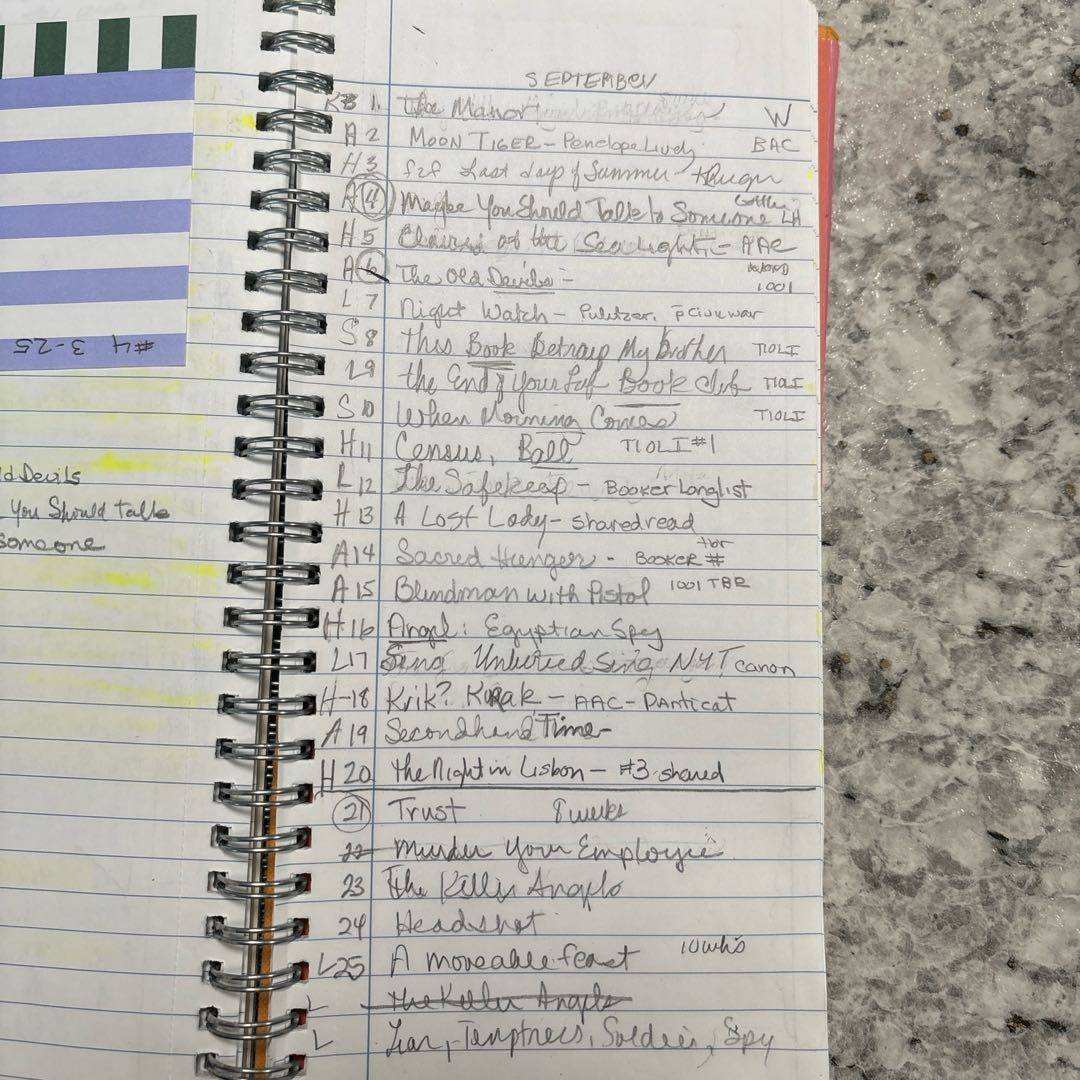 SEPTEMBER
1. The Manor W
A 2 MOON TIGER - Penelope Lively BAC
H 3 f2f Last days of Summer -
A 4 Maybe You Should Talk to Someone LA
H 5 of the Sea Light - AAC
A 6 The Old Devils - 1001
L 7 Night Watch - Pulitzer, Civil war
S 8 This Book Betray My Brother TIOLI
L9 the End of Your Life Book Club TIOLI
S 10 When Morning Comes TIOLI
H 11 Census, Ball TIOLI #1
L 12 The Safekeep - Booker Longlist
H 13 A Lost Lady - shared read
A 14 Sacred Hunger - BOOKER # tbr
A 15 Blindman with Pistol 1001 TBR
H 16 Angel: Egyptian Spy
L17 Sing Unburied Sing NYT canon
H-18 Krik? Krak - AAC - Danticat
A 19 Secondhand Time -
H 20 the Night in Lisbon - #3 shared
21 Trust 8 weeks
22 Murder Your Employee
23 The Killer Angels
24 Headshot
L25 A moveable feast 10 wks
L the Killer Angels
L Liar, Temptress, Soldier, Spy
#4 3-25
ld Devils
You Should talk
someone